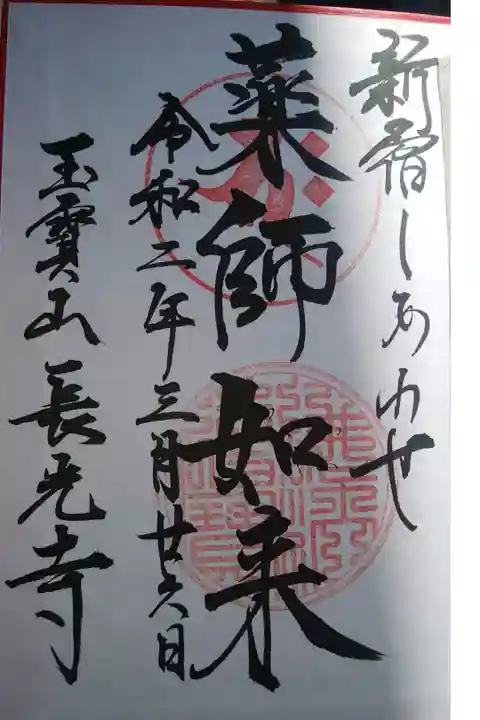 新宿しあわせ
薬師如来
令和二年三月廿六日
玉寳山長光寺